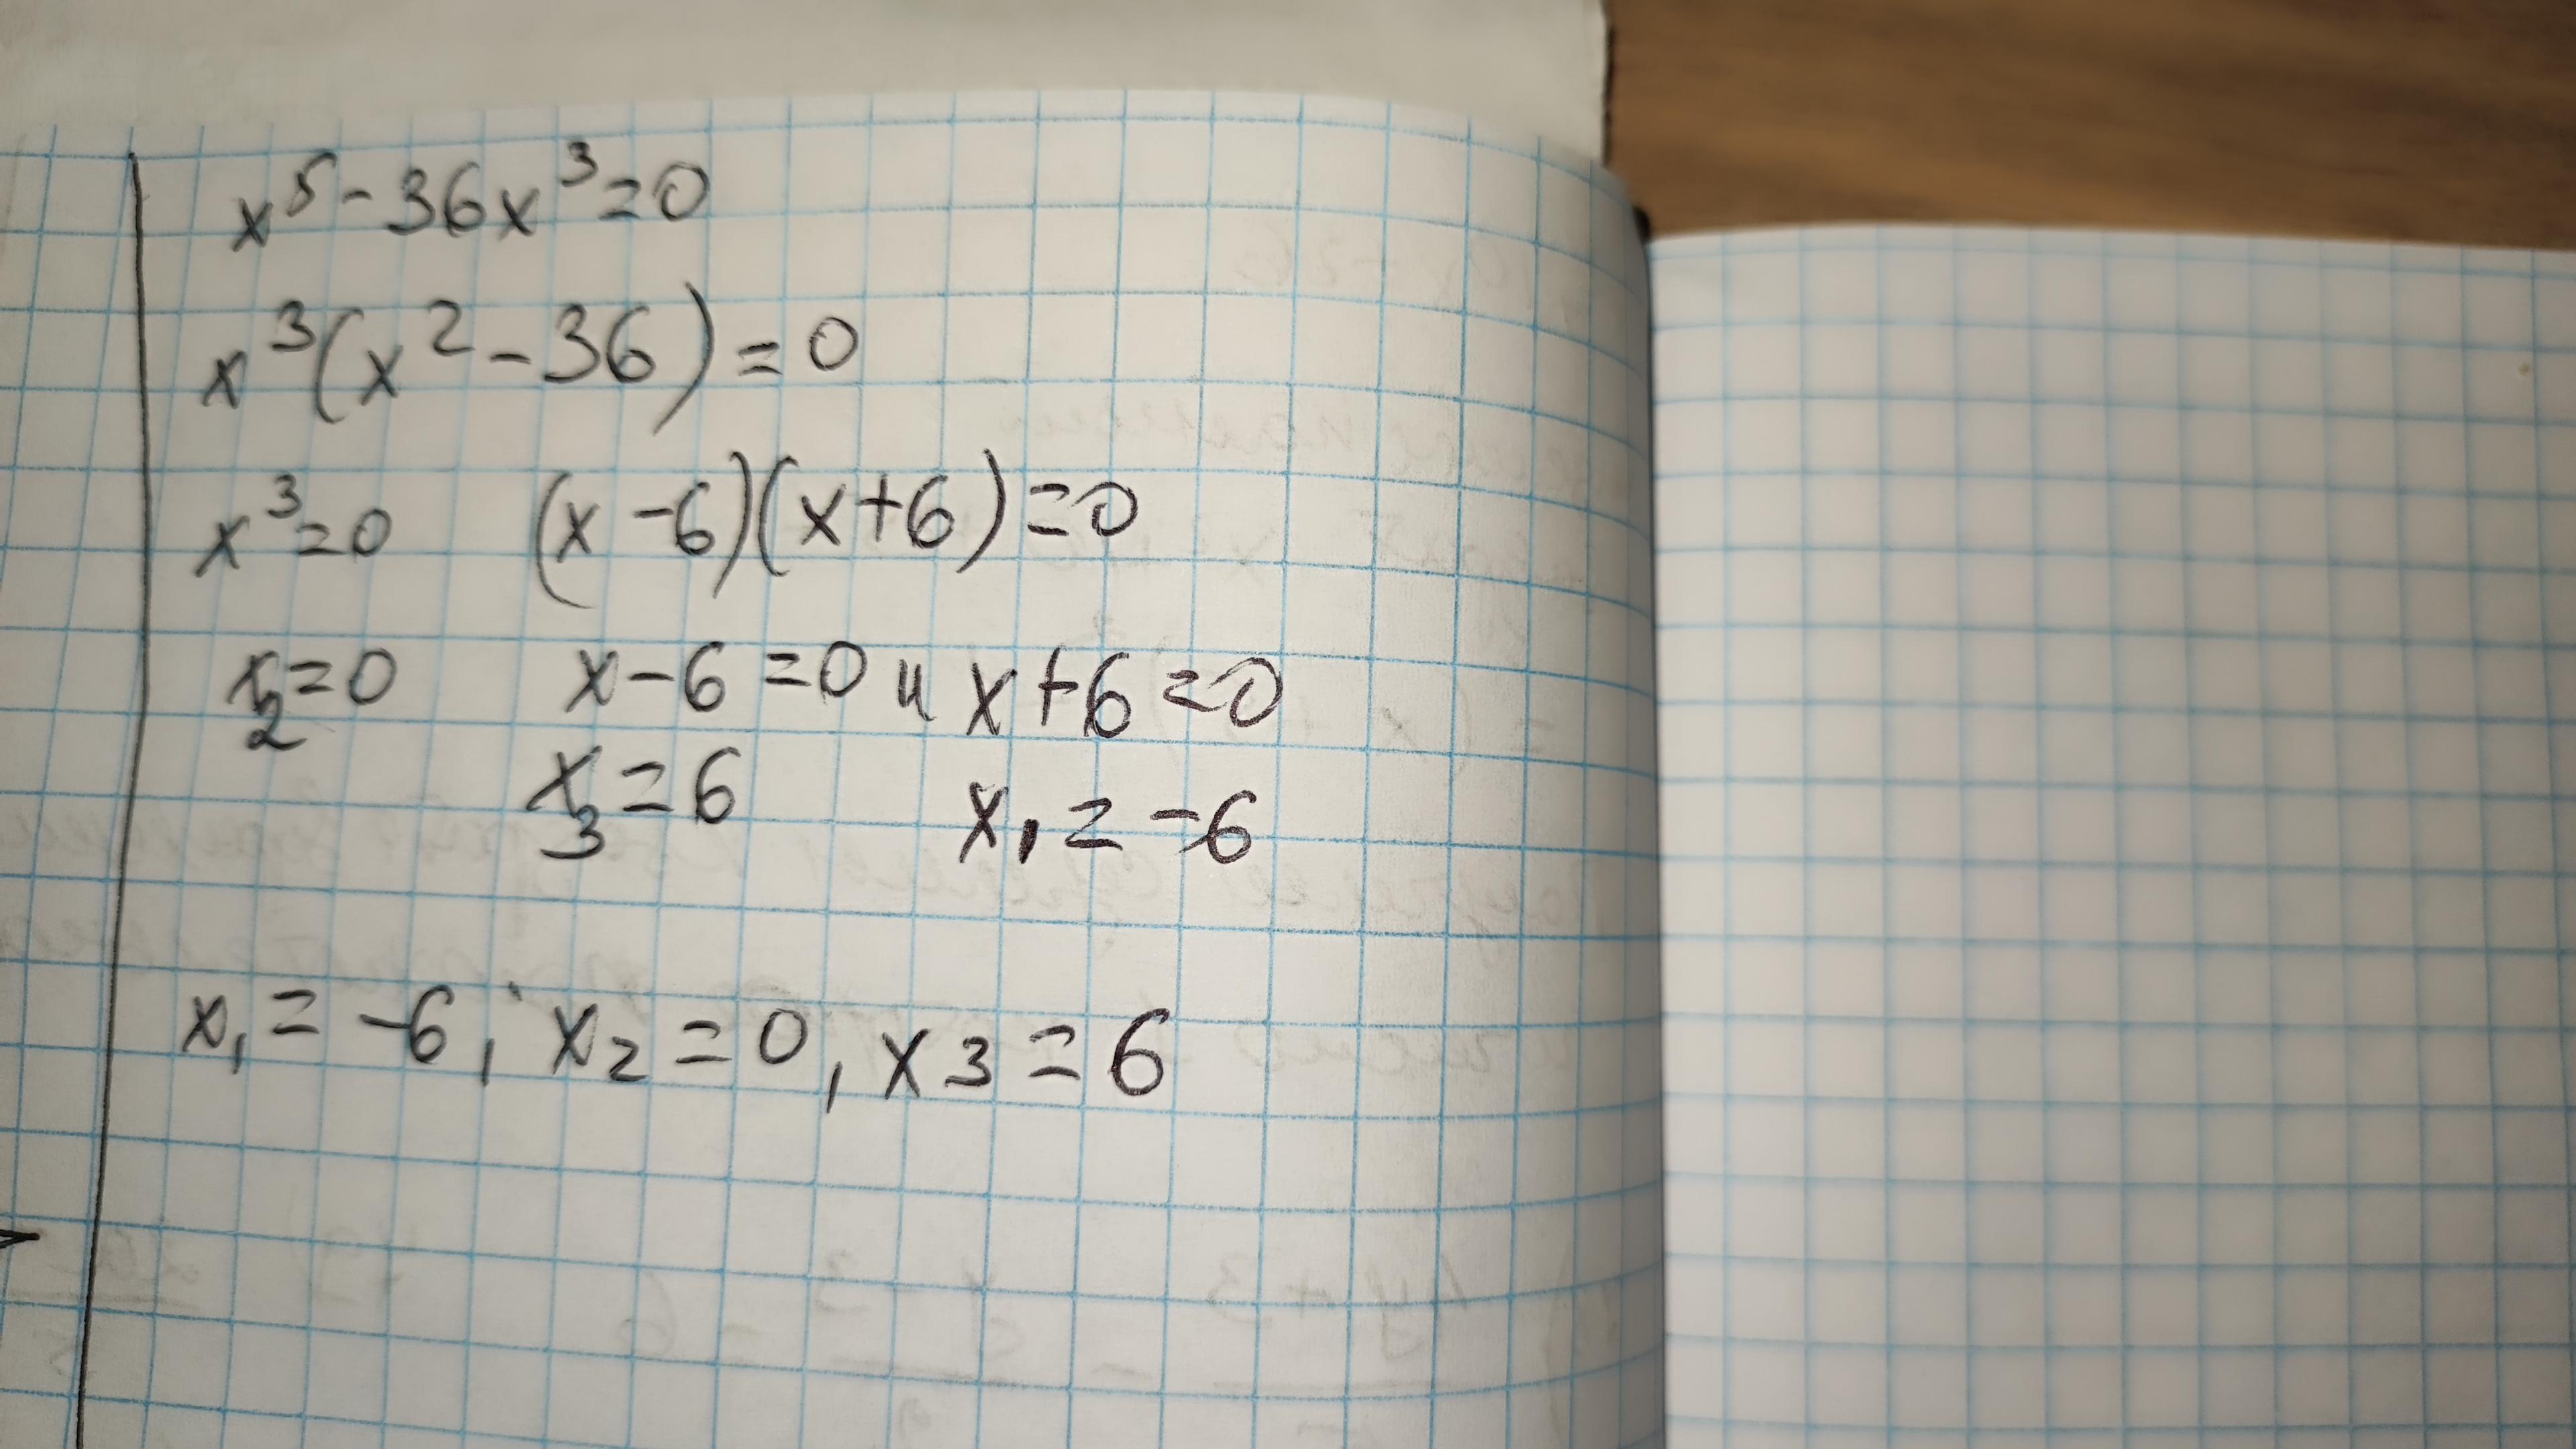 x⁵ - 36x³ = 0
x³(x² - 36) = 0
x³ = 0 (x - 6)(x + 6) = 0
x₂ = 0 x - 6 = 0 и x + 6 = 0
x₃ = 6 x₁ = -6
x₁ = -6, x₂ = 0, x₃ = 6